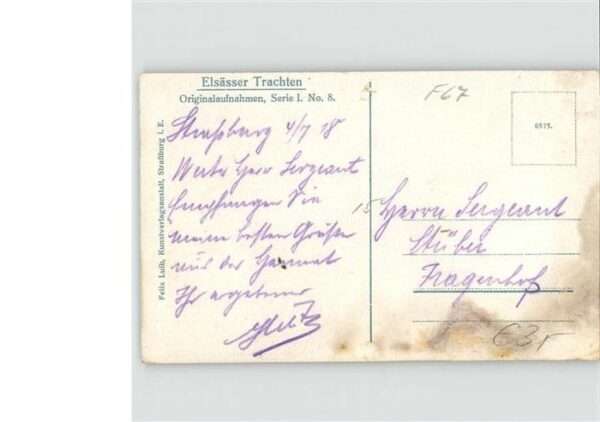 Elsässer Trachten
Originalaufnahmen, Serie I. No. 8.
Felix Luib, Kunstverlagsanstalt, Straßburg i. E.
Straßburg 4/7 18
Werter Herr Sergeant
Empfangen Sie
meine besten Grüße
aus der Heimat
Ihr ergebener
F67
6515.
15
Herrn Sergeant
Stüber
Hagenhof
63,-